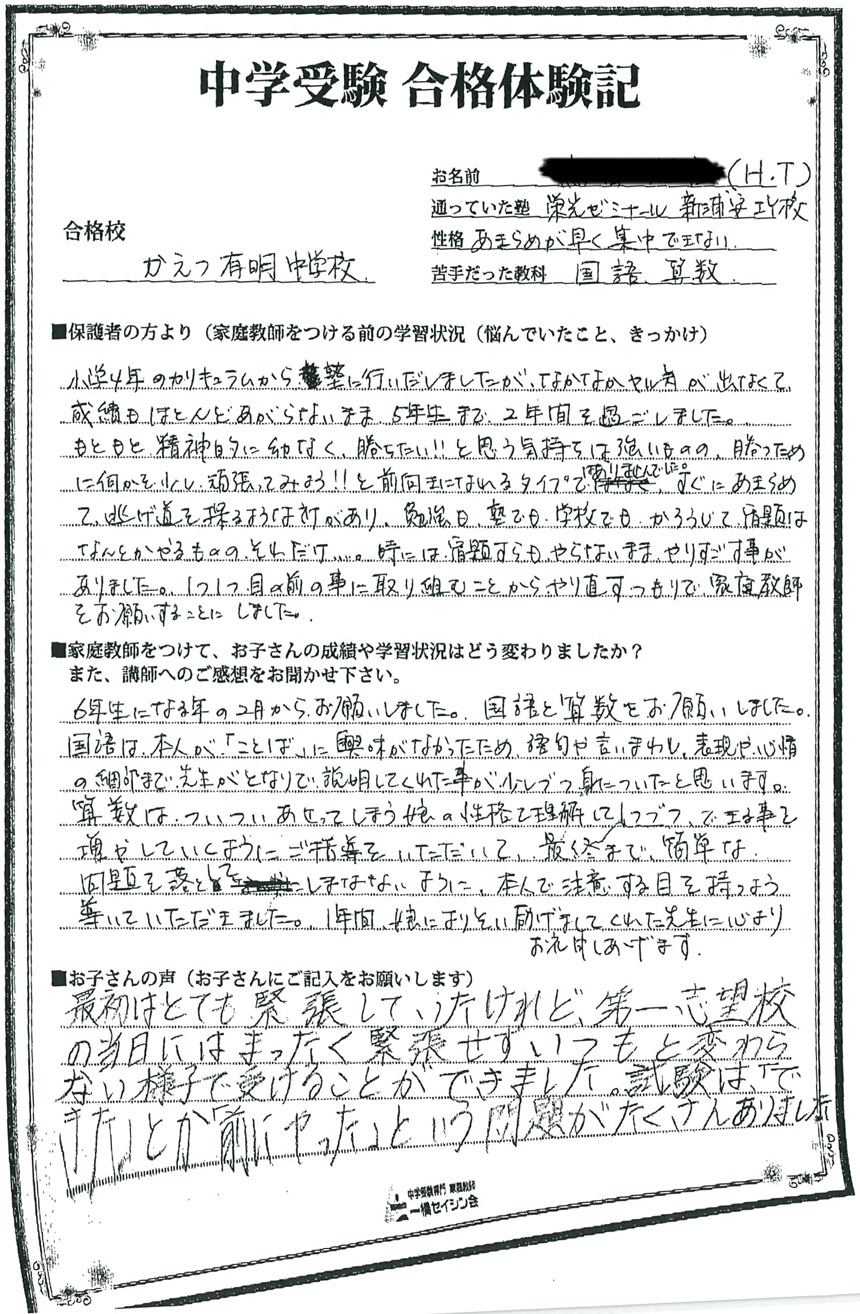 中学受験 合格体験記
お名前 (H.T)
通っていた塾 栄光ゼミナール 新浦安校
合格校
性格 あきらめが早く集中できない.
かえつ有明中学校.
苦手だった教科 国語、算数
■保護者の方より（家庭教師をつける前の学習状況（悩んでいたこと、きっかけ）
小学4年のカリキュラムから塾に行いだしましたが、なかなかヤル気が出なくて
成績もほとんどあがらないまま、5年生まで2年間を過ごしました。
もともと精神的に幼なく、勝ちたい!!と思う気持ちは強いものの、勝つため
に何かを少し、頑張ってみよう!!と前向きになれるタイプでありませんでした。すぐにあきらめ
て、逃げ道を探るような所があり、勉強も、塾でも、学校でも、かろうじて宿題は
なんとかやるものの、それだけ…。時には宿題すらもやらないまま、やりすごす事が
ありました。1つ1つ目の前の事に取り組むことからやり直すつもりで、家庭教師
をお願いすることにしました。
■家庭教師をつけて、お子さんの成績や学習状況はどう変わりましたか？
また、講師へのご感想をお聞かせ下さい。
6年生になる年の2月からお願いしました。国語と算数をお願いしました。
国語は、本人が「ことば」に興味がなかったため、語句や言いまわし、表現や心情
の細部まで、先生がとなりで説明してくれた事が少しづつ身についたと思います。
算数は、ついついあせってしまう娘の性格を理解して、1つづつ、できる事を
増やしていくようにご指導をいただいて、最終まで、簡単な
問題を落としてしまわないように、本人で注意する目を持つよう
導いていただきました。1年間、娘によりそい励げましてくれた先生に心より
お礼申しあげます.
■お子さんの声（お子さんにご記入をお願いします）
最初はとても緊張していったけれど、第一志望校
の当日にはまったく緊張せずいつもと変わら
ない様子で受けることができました。試験は、「で
きた」とか「前にやった」という問題がたくさんありました
中学受験専門 家庭教師
一橋セイシン会